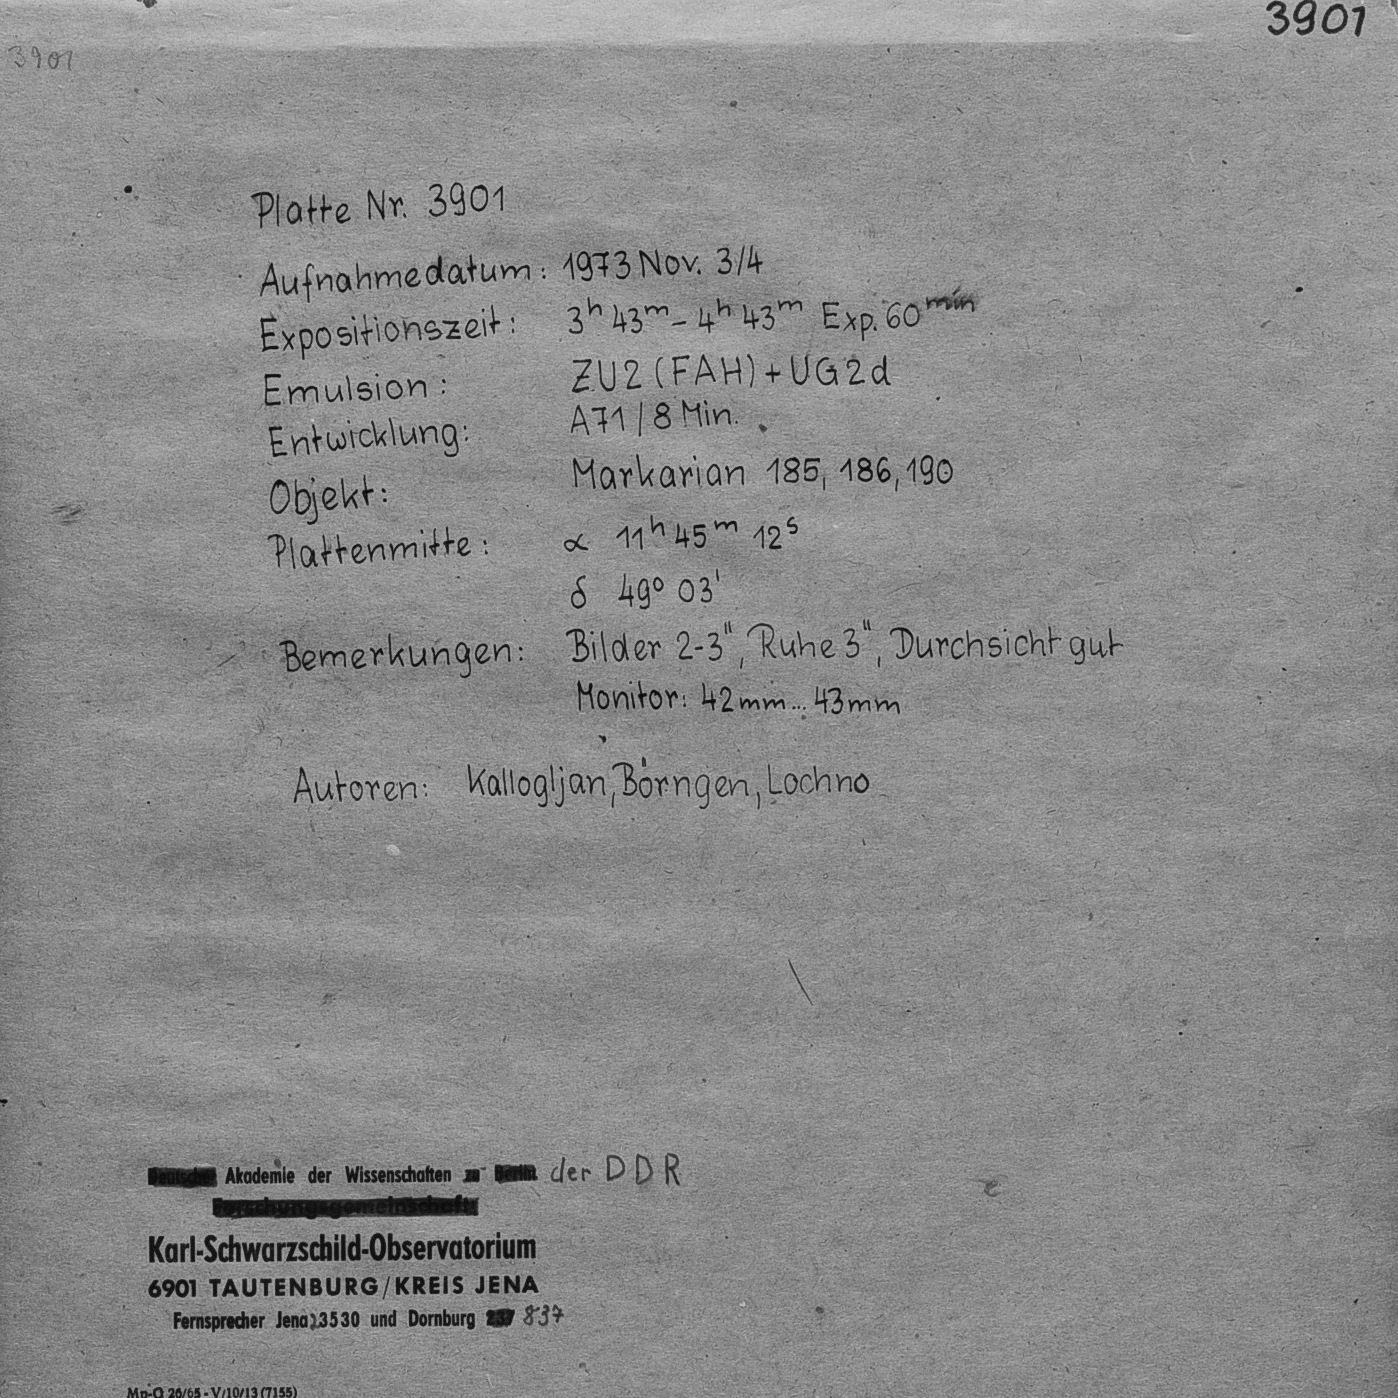 3901
3901
Platte Nr. 3901
Aufnahmedatum: 1973 Nov. 3/4
Expositionszeit: 3ʰ 43ᵐ – 4ʰ 43ᵐ Exp. 60ᵐⁱⁿ
Emulsion: ZU2 (FAH) + UG2d
Entwicklung: A71 / 8 Min.
Objekt: Markarian 185, 186, 190
Plattenmitte: α 11ʰ 45ᵐ 12ˢ
δ 49° 03'
Bemerkungen: Bilder 2-3", Ruhe 3", Durchsicht gut
Monitor: 42mm... 43mm
Autoren: Kallogljan, Börngen, Lochno
Deutsche Akademie der Wissenschaften zu Berlin der DDR
Forschungsgemeinschaft
Karl-Schwarzschild-Observatorium
6901 TAUTENBURG/KREIS JENA
Fernsprecher Jena 23530 und Dornburg 237 837
Mp-G 26/65 - V/10/13 (7155)